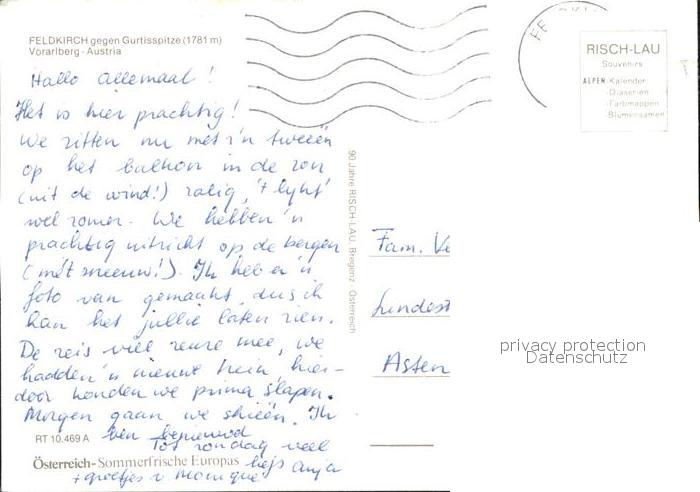 FELDKIRCH gegen Gurtisspitze (1781 m)
Vorarlberg - Austria
Hallo allemaal!
Het is hier prachtig!
We zitten nu met z'n tweeën
op het balkon in de zon
(uit de wind!) zalig, 't lijkt
wel zomer. We hebben 'n
prachtig uitzicht op de bergen
(mét sneeuw!). Ik heb er 'n
foto van gemaakt, dus ik
kan het jullie laten zien.
De reis viel reuze mee, we
hadden 'n nieuwe trein, hier-
door konden we prima slapen.
Morgen gaan we skieën. Ik
ben benieuwd
Tot zondag veel
liefs Anja
+ groetjes v. Monique
RT 10.469 A
Österreich - Sommerfrische Europas
90 Jahre RISCH-LAU, Bregenz Österreich
FE
RISCH-LAU
Souvenirs
ALPEN-Kalender
-Diaserien
-Farbmappen
-Blumensamen
Fam. Ve
Asten
privacy protection
Datenschutz